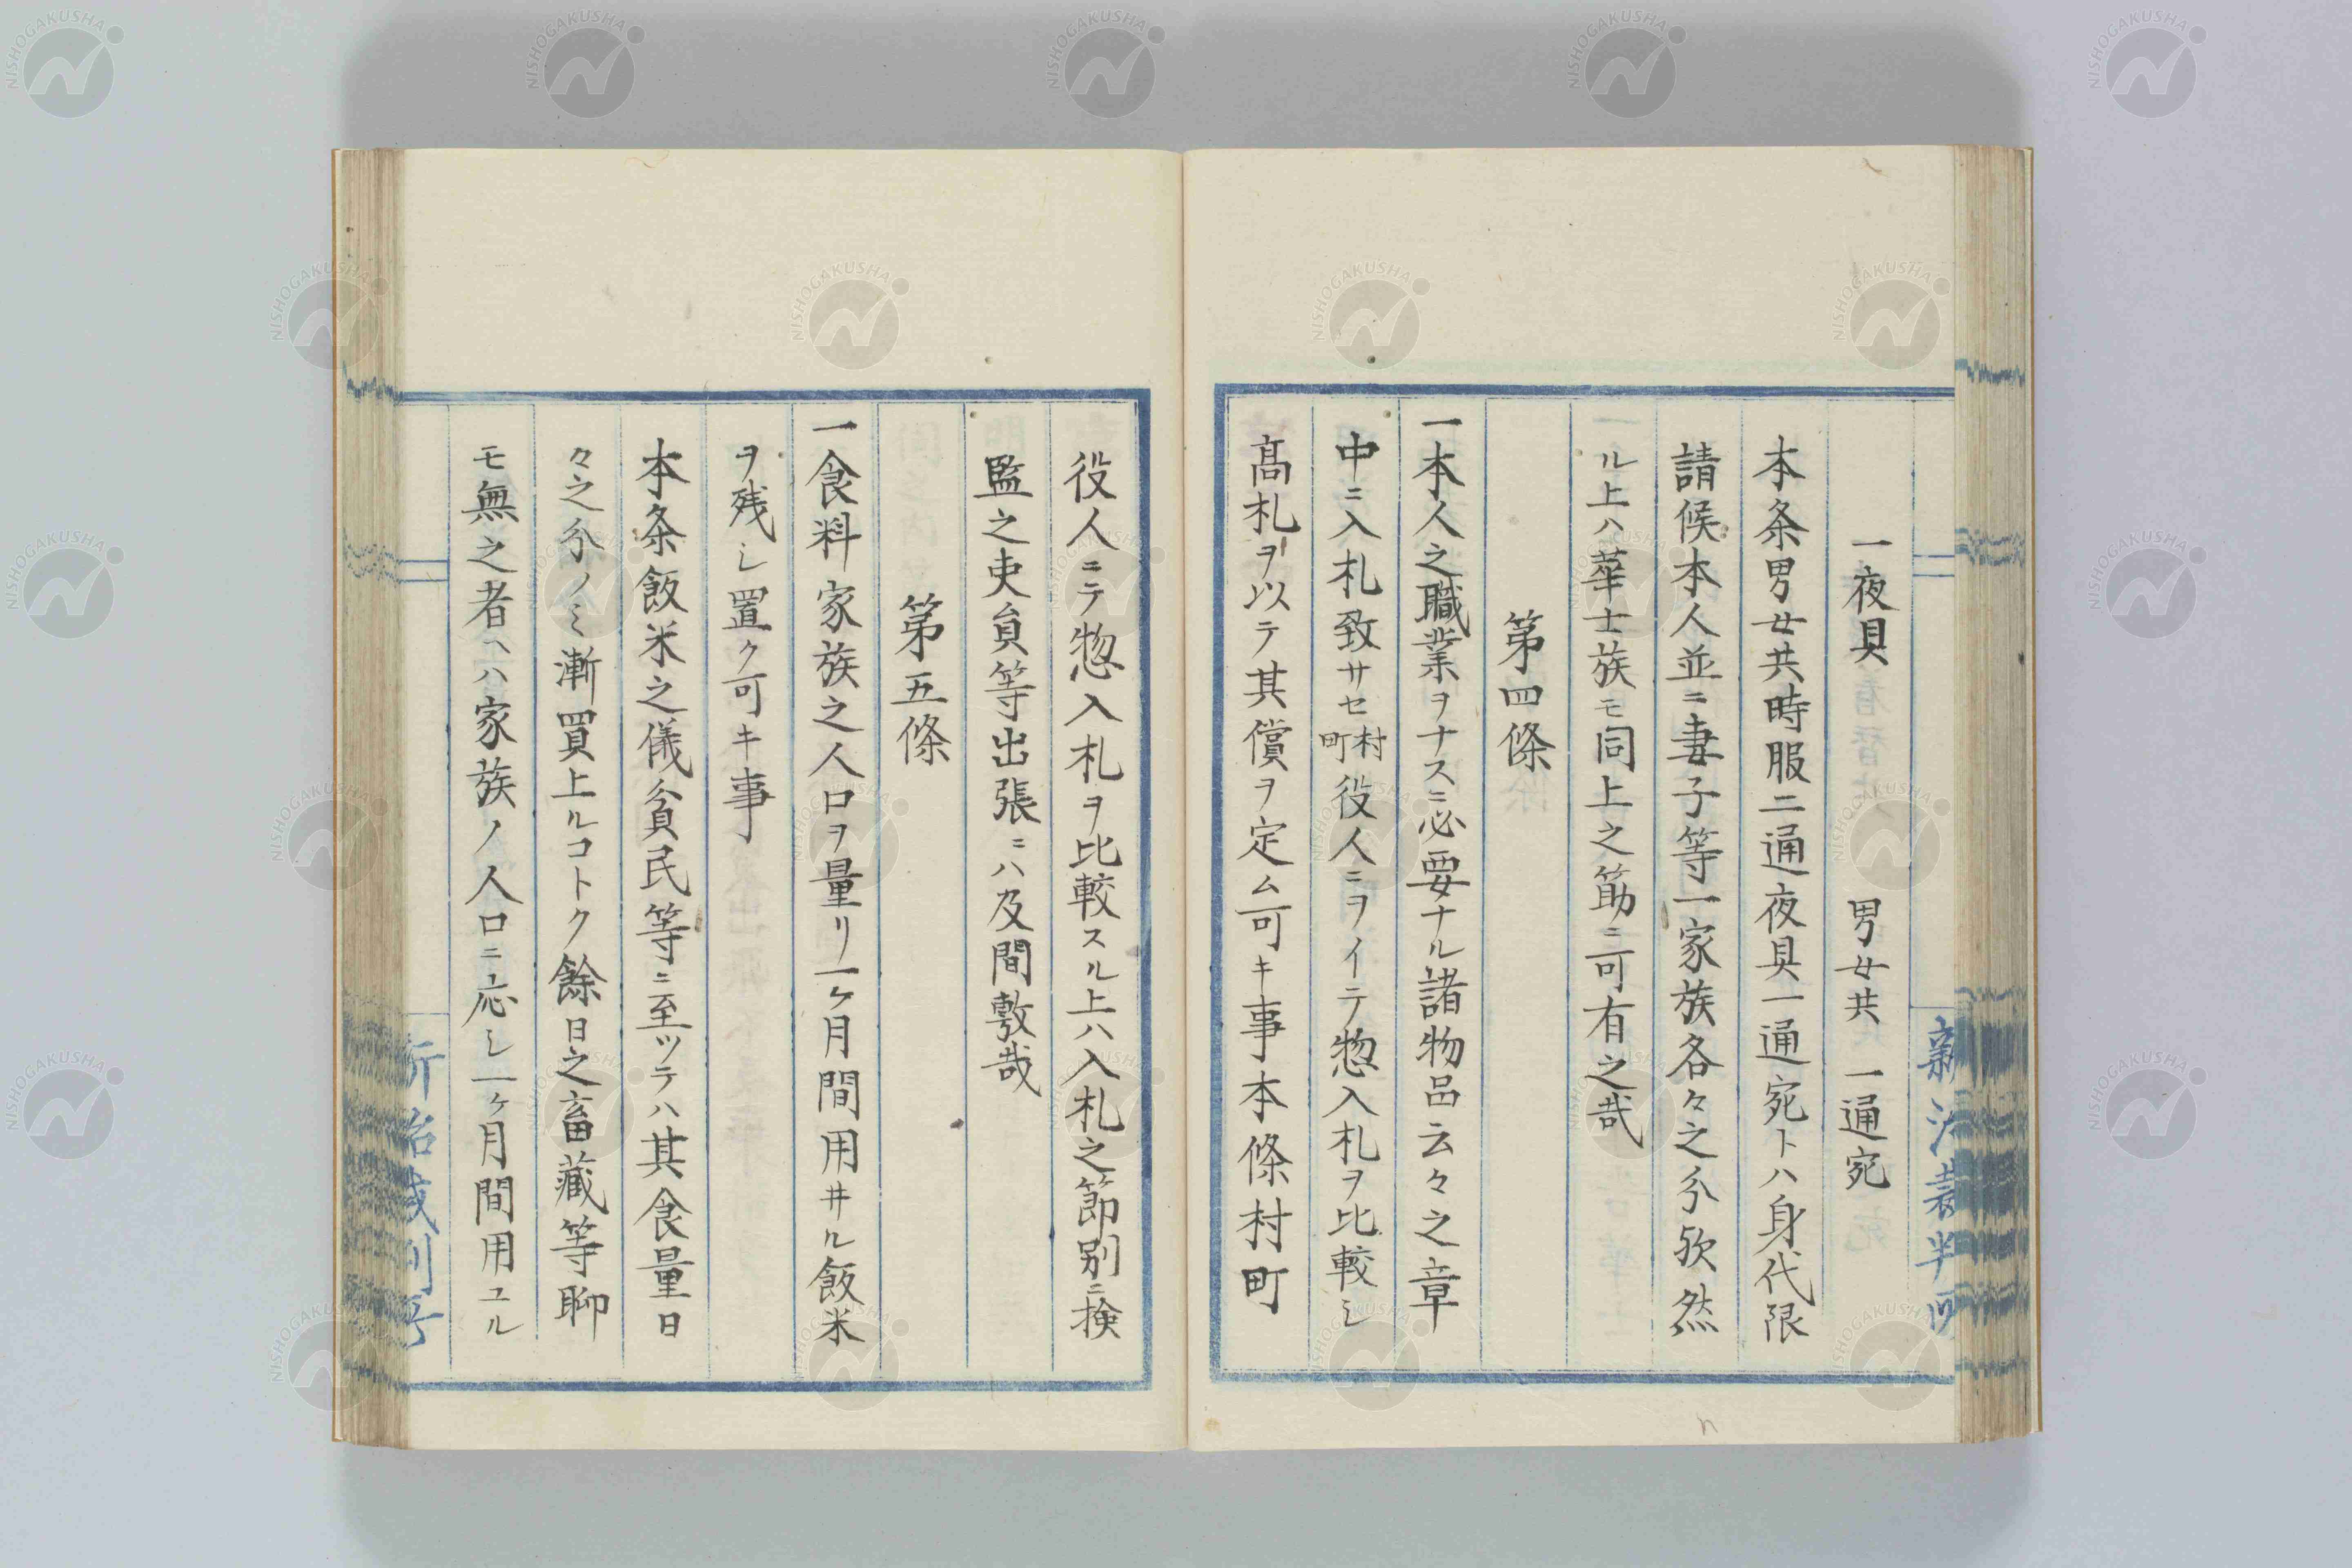 一夜具　男女共　一通宛
本条男女共時服二通夜具一通宛トハ身代限
請候本人並ニ妻子等一家族各々之分欤然
ル上ハ華士族モ同上之筋ニ可有之哉
第四條
一本人之職業ヲナスニ必要ナル諸物品云々之章
中ニ入札致サセ村町役人ニヲイテ惣入札ヲ比較シ
髙札ヲ以テ其償ヲ定ム可キ事本條村町
役人ニテ惣入札ヲ比較スル上ハ入札之節別ニ検
監之吏員等出張ニハ及間敷哉
第五條
一食料家族之人口ヲ量リ一ケ月間用井ル飯米
ヲ残シ置ク可キ事
本条飯米之儀貧民等ニ至ツテハ其食量日
々之分ノミ漸買上ルコトク餘日之畜藏等聊
モ無之者ヘハ家族ノ人口ニ応シ一ケ月間用ユル
NISHOGAKUSHA